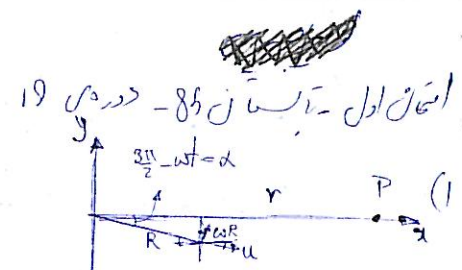 امتحان اول - تابستان 85 - دوره‌ی 19
y
3π/2 - ωt = α
r P (1
R ωR u x